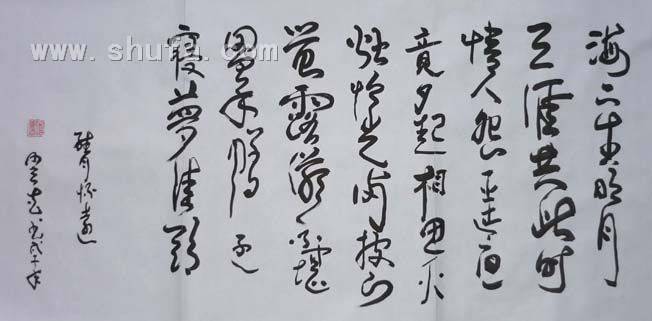 海上生明月
天涯共此时
情人怨遥夜
竟夕起相思灭
烛怜光满披衣
觉露滋不堪
盈手赠还
寝夢佳期
望月怀远
书
www.shufa.com